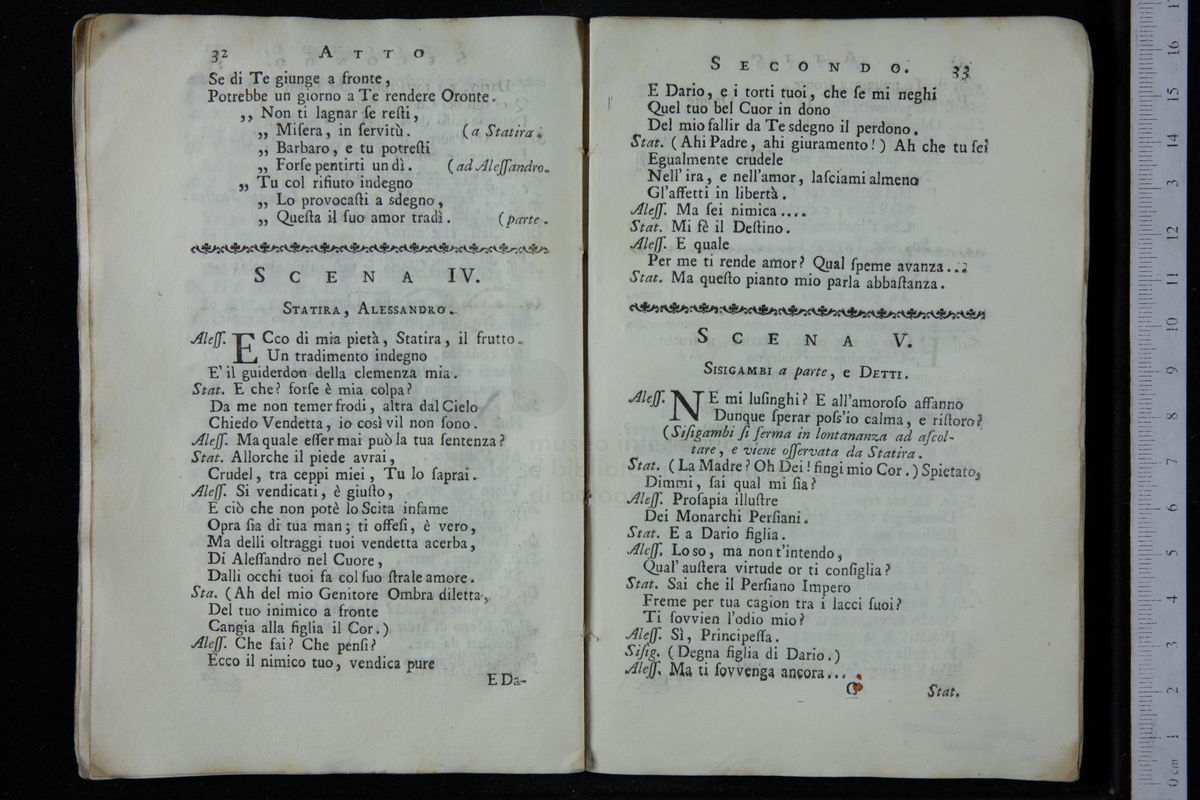 32 ATTO
Se di Te giunge a fronte,
Potrebbe un giorno a Te rendere Oronte.
,, Non ti lagnar ſe reſti,
,, Miſera, in ſervitù. (a Statira.
,, Barbaro, e tu potreſti
,, Forſe pentirti un dì. (ad Aleſſandro.
,, Tu col rifiuto indegno
,, Lo provocaſti a sdegno,
,, Queſta il ſuo amor tradì. (parte.
SCENA IV.
STATIRA, ALESSANDRO.
Aleſſ. ECco di mia pietà, Statira, il frutto.
Un tradimento indegno
E' il guiderdon della clemenza mia.
Stat. E che? forſe è mia colpa?
Da me non temer frodi, altra dal Cielo
Chiedo Vendetta, io così vil non ſono.
Aleſſ. Ma quale eſſer mai può la tua ſentenza?
Stat. Allorche il piede avrai,
Crudel, tra ceppi miei, Tu lo ſaprai.
Aleſſ. Si vendicati, è giuſto,
E ciò che non potè lo Scita infame
Opra ſia di tua man; ti offeſi, è vero,
Ma delli oltraggi tuoi vendetta acerba,
Di Aleſſandro nel Cuore,
Dalli occhi tuoi fa col ſuo ſtrale amore.
Sta. (Ah del mio Genitore Ombra diletta,
Del tuo inimico a fronte
Cangia alla figlia il Cor.)
Aleſſ. Che fai? Che penſi?
Ecco il nimico tuo, vendica pure
E Da-
SECONDO. 33
E Dario, e i torti tuoi, che ſe mi neghi
Quel tuo bel Cuor in dono
Del mio fallir da Te sdegno il perdono.
Stat. (Ahi Padre, ahi giuramento!) Ah che tu ſei
Egualmente crudele
Nell' ira, e nell'amor, laſciami almeno
Gl'affetti in libertà.
Aleſſ. Ma ſei nimica ....
Stat. Mi fè il Deſtino.
Aleſſ. E quale
Per me ti rende amor? Qual ſpeme avanza...?
Stat. Ma queſto pianto mio parla abbaſtanza.
SCENA V.
SISIGAMBI a parte, e DETTI.
Aleſſ. NE mi luſinghi? E all'amoroſo affanno
Dunque ſperar poſs'io calma, e riſtoro?
(Siſigambi ſi ferma in lontananza ad aſcol-
tare, e viene oſſervata da Statira.
Stat. (La Madre? Oh Dei! fingi mio Cor.) Spietato,
Dimmi, ſai qual mi ſia?
Aleſſ. Proſapia illuſtre
Dei Monarchi Perſiani.
Stat. E a Dario figlia.
Aleſſ. Lo so, ma non t'intendo,
Qual' auſtera virtude or ti conſiglia?
Stat. Sai che il Perſiano Impero
Freme per tua cagion tra i lacci ſuoi?
Ti ſovvien l'odio mio?
Aleſſ. Sì, Principeſſa.
Siſig. (Degna figlia di Dario.)
Aleſſ. Ma ti ſovvenga ancora...
Stat.